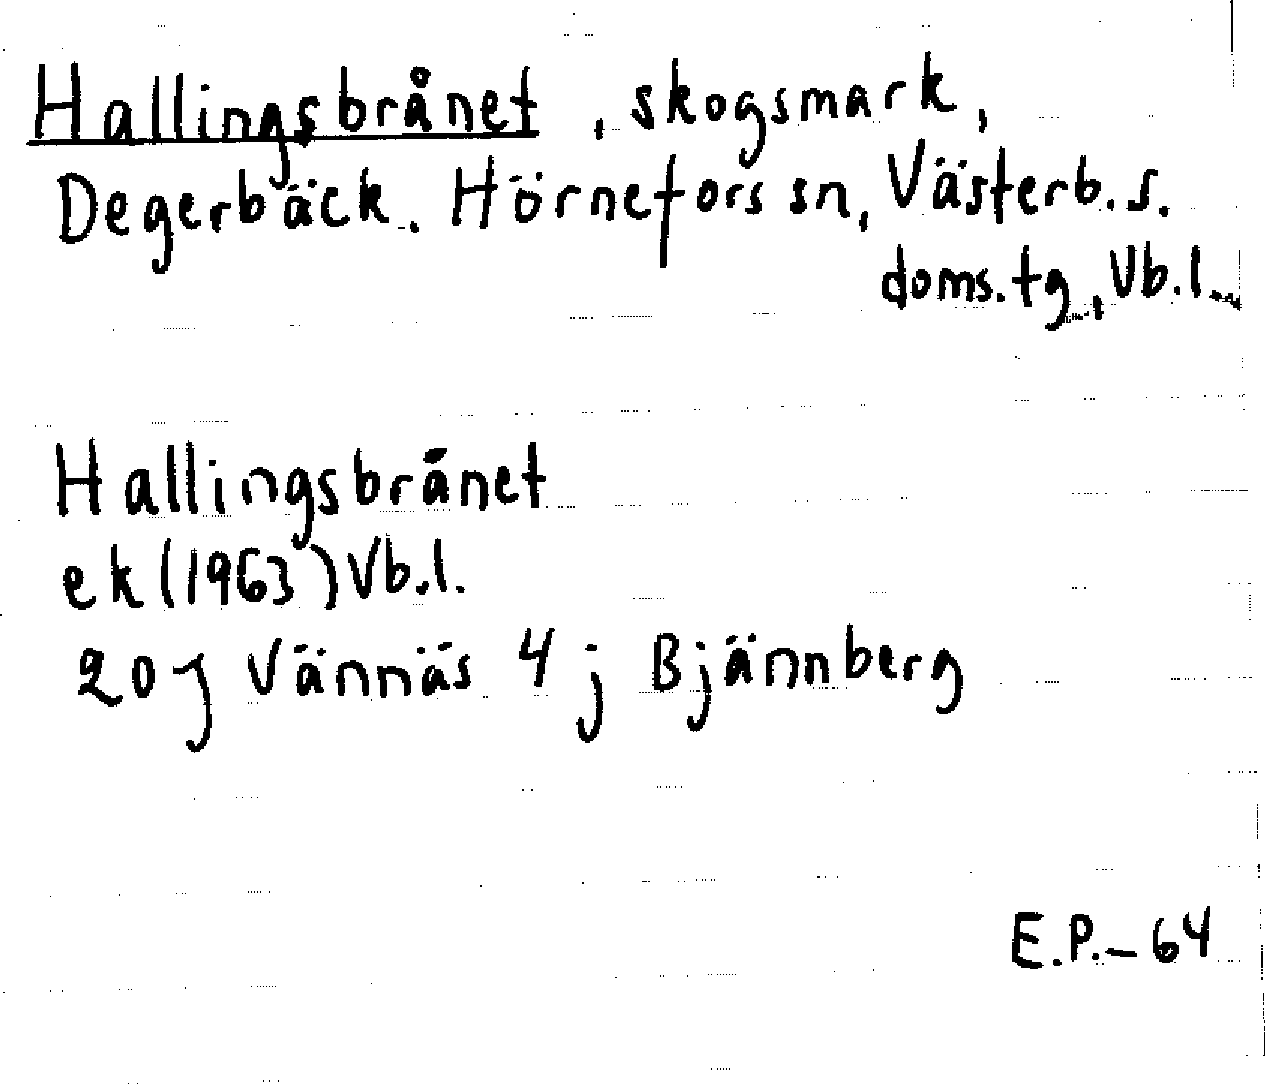 Hallingsbrånet, skogsmark,
Degerbäck. Hörnefors sn, Västerb. s.
doms.tg, Vb.l.
Hallingsbrånet
ek (1963) Vb.l.
20 J Vännäs 4 j Bjännberg
E.P.-64